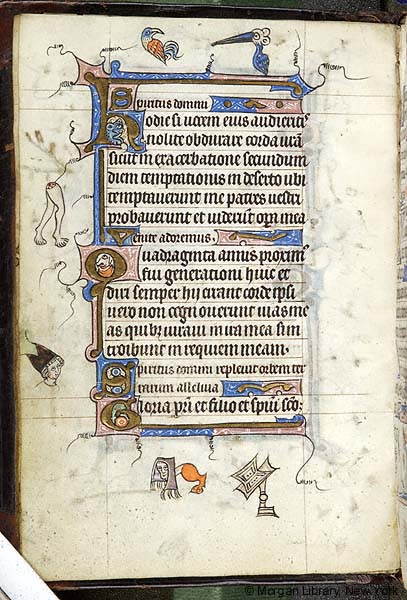 Spiritus domini
Hodie si vocem eius audieritis
nolite obdurare corda vr̃a
sicut in exacerbatione secundum
diem temptationis in deserto ubi
temptaverunt me patres vestri
probaverunt et viderunt opa mea
Venite adoremus.
Quadraginta annis proxim9
fui generationi huic et
dixi semper hij errant corde ipsi
vero non cognoverunt vias me
as quib9 iuravi in ira mea si in
troibunt in requiem meam.
Spiritus domini replevit orbem ter
rarum alleluia
Gloria pr̃i et filio et spiũi sc̃o:
© Morgan Library, New York